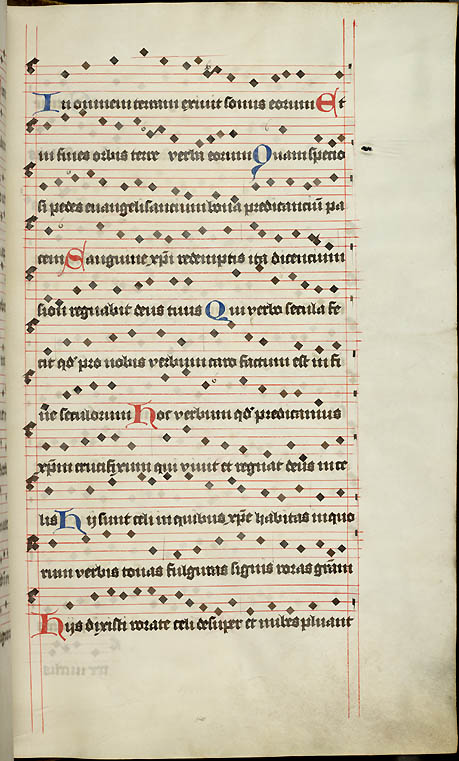 In omnem terram exivit sonus eorum Et
in fines orbis terre verba eorum Quam specio
si pedes euangelisancium bona predicanciū pa
cem Sanguine xp̄i redemptis ita dicencium
sion regnabit deus tuus Qui verbo secula fe
cit qd̓ pro nobis verbum caro factum est in fi
ne seculorum Hoc verbum qd̓ predicamus
xp̄m crucifixum qui vivit et regnat deus in ce
lis Hij sunt celi in quibus xp̄e habitas in quo
rum verbis tonas fulguras signis roras grām
Hijs dixisti rorate celi desuper et nubes pluant